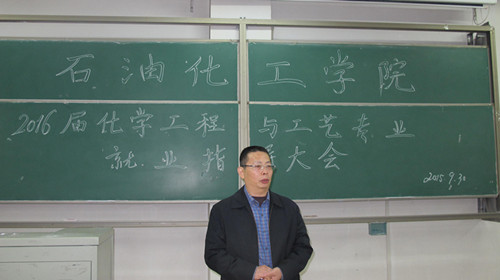 石油化工学院
2016届化学工程与工艺专业
就业指导大会
2015.9.30